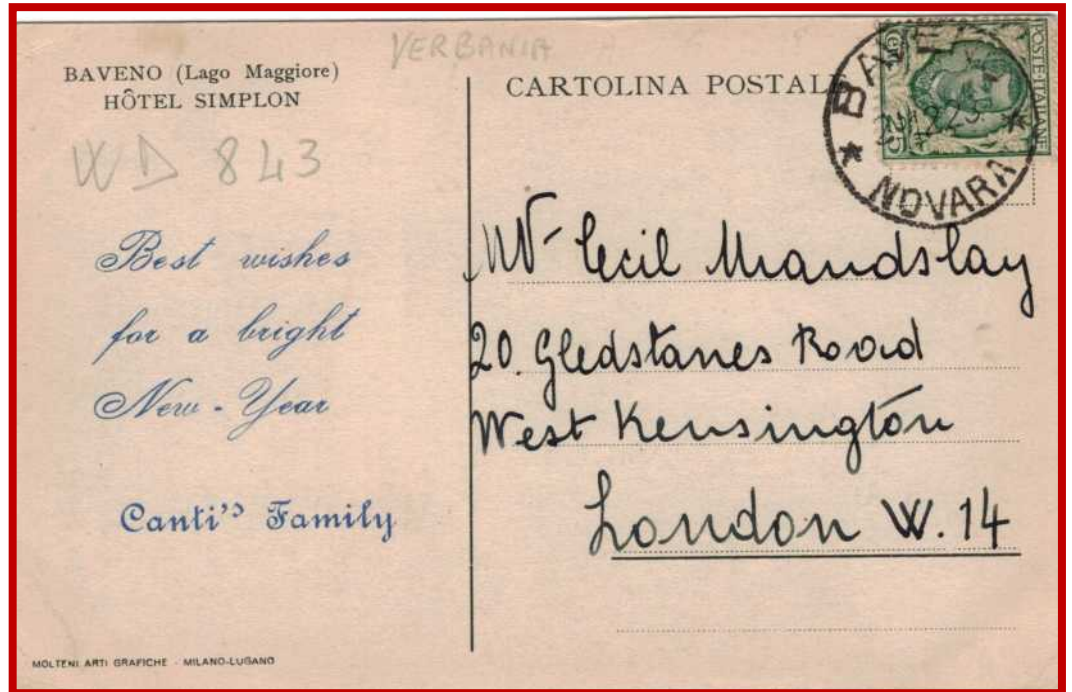 VERBANIA
BAVENO (Lago Maggiore)
HÔTEL SIMPLON
WD 843
Best wishes
for a bright
New-Year
Canti's Family
MOLTENI ARTI GRAFICHE - MILANO-LUGANO
CARTOLINA POSTALE
POSTE·ITALIANE
NOVARA
Mr Cecil Maudslay
20. Gledstanes Road
West Kensington
London W. 14